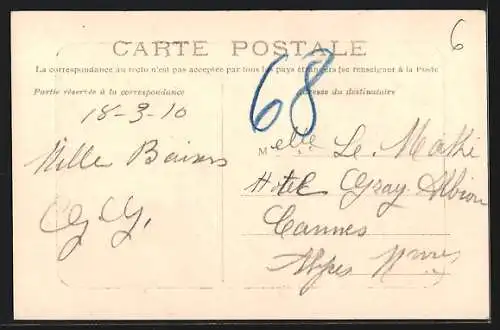 CARTE POSTALE
6
68
La correspondance au recto n'est pas acceptée par tous les pays étrangers (se renseigner à la Poste
Partie réservée à la correspondance
Adresse du destinataire
18-3-10
Mille Baisers
Melle Le
Hotel Gray Albion
Cannes
Alpes Mmes